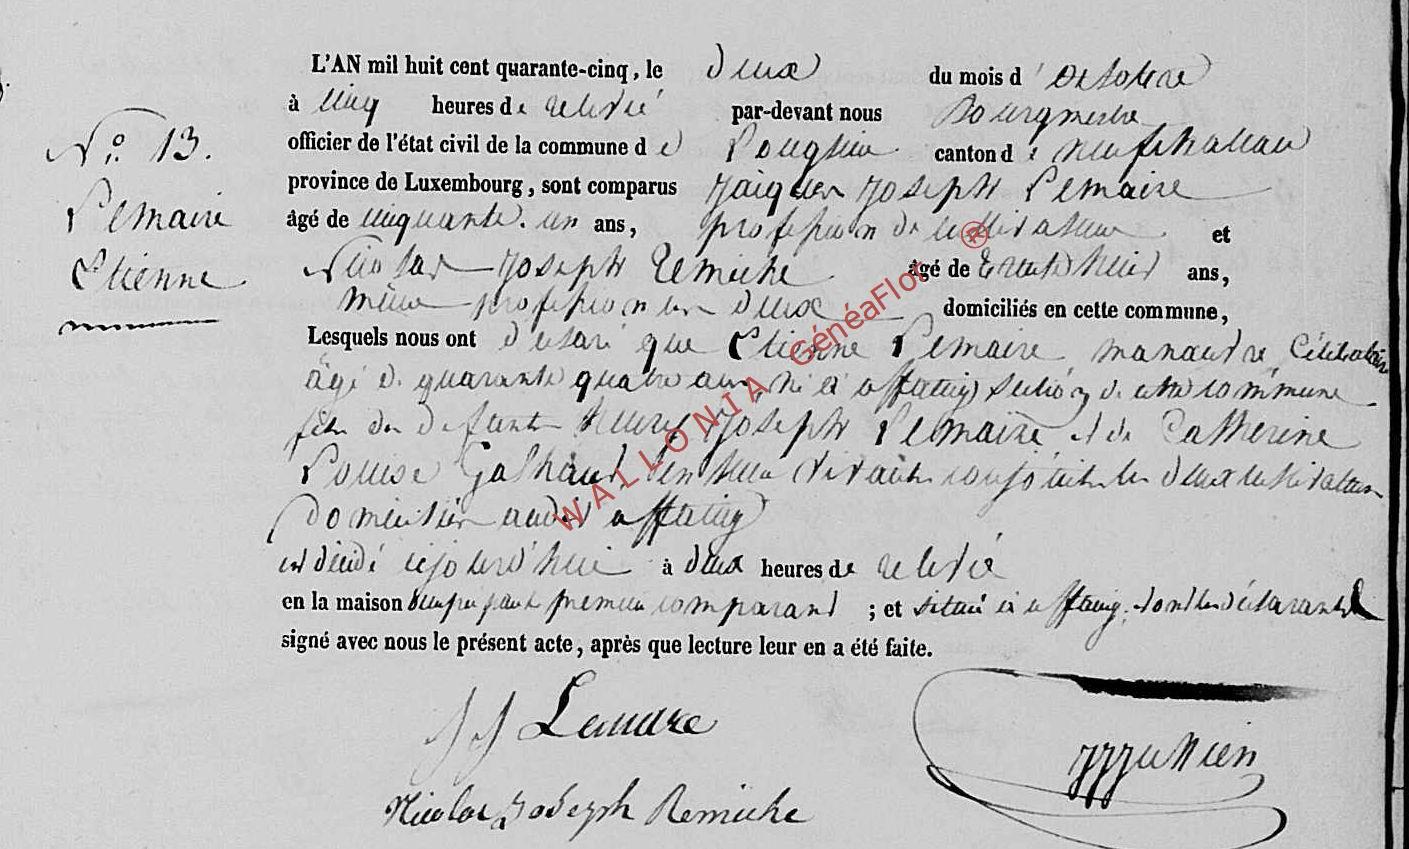 L'AN mil huit cent quarante-cinq, le deux du mois d'octobre
à cinq heures de relevé par-devant nous Bourgmestre
N°. 13. officier de l'état civil de la commune de Longlier canton de neufchateau
Lemaire province de Luxembourg, sont comparus Jacques Joseph Lemaire
âgé de cinquante un ans, profession de cultivateur et
Etienne Nicolas Joseph Remiche âgé de trente huit ans,
même profession les deux domiciliés en cette commune,
Lesquels nous ont déclaré que Etienne Lemaire manœuvre Célibataire
âgé de quarante quatre ans, né à offaing section de cette commune
fils de défunt henri Joseph Lemaire et de Catherine
Louise en leur vivant conjoints les deux cultivateurs
domiciliés audit offaing
est décédé cejourd'hui à deux heures de relevé
en la maison premier comparant ; et située à offaing. et ont les déclarants
signé avec nous le présent acte, après que lecture leur en a été faite.
JJ Lemaire
Nicolas Joseph Remiche
WALLONIA GénéaFlor ®